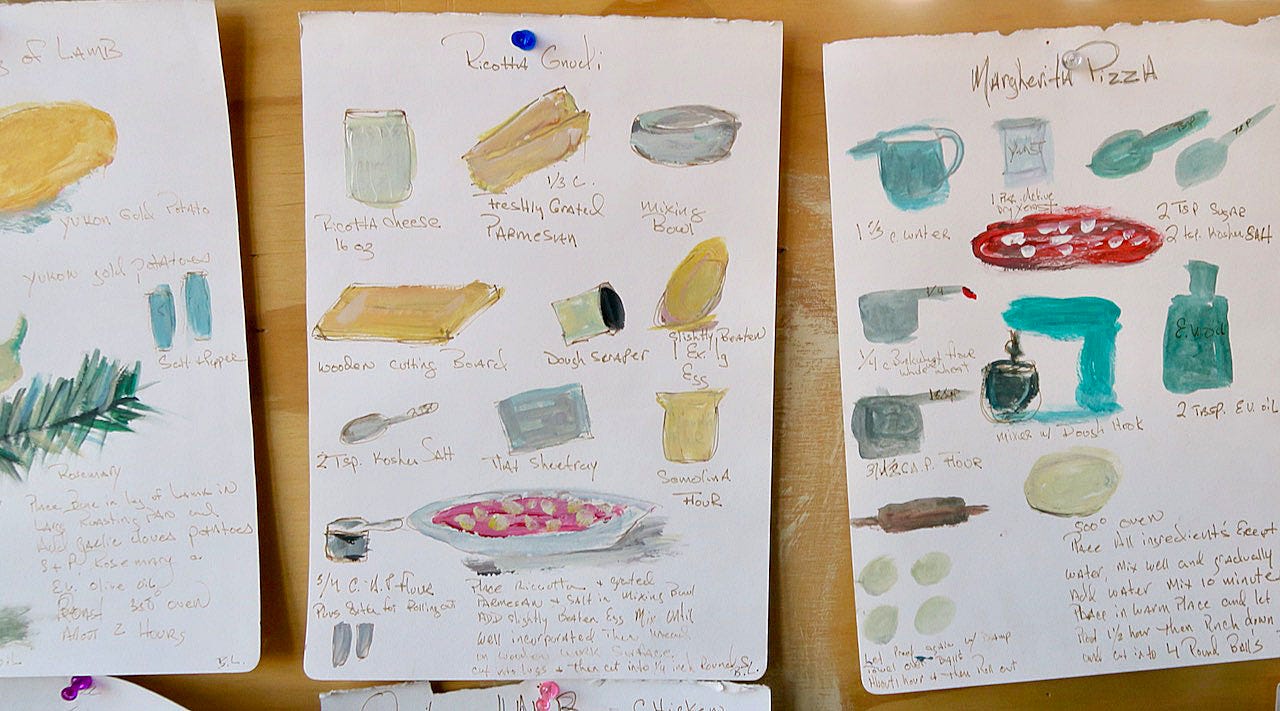 of LAMB
Yukon Gold Potato
yukon gold potatoes
Salt + Pepper
Rosemary
Place Bone in leg of Lamb in
Large Roasting PAN and
Add garlic cloves potatoes
S + P, Rosemary
E.V. Olive oil
Roast 350° oven
About 2 Hours
B.L.
Ricotta Gnudi
Ricotta cheese
16 oz
1/3 C.
Freshly Grated
PARMESAN
Mixing
Bowl
Wooden cutting Board
Dough Scraper
Slightly Beaten
Ex. lg
Egg
2 Tsp. Kosher Salt
Flat Sheetray
Semolina
Flour
3/4 C. A.P. Flour
Plus Extra for Rolling out
Place Riccotta + grated
PARMESAN + Salt in Mixing Bowl
ADD slightly Beaten Egg Mix Until
well incorporated Then Knead
on wooden work Surface.
cut into Logs + then cut into 1/4 inch Rounds
B.L.
Margherita Pizza
YEAST
TSP
TSP
1 1/3 c. water
1 Pkg. Active
Dry yeast
2 TSP Sugar
2 tsp. Kosher SAlt
1/4
E.V. oil
1/4 c. Flour
Mixer w/ Dough Hook
2 TBSP. E.V. oil
3 1/2 C A.P. Flour
500° oven
Place All ingredients Except
water, Mix well and gradually
Add water Mix 10 minutes
Place in warm Place and let
1 1/2 hour then Punch down
and cut into 4 Round Balls
Let Proof again w/ Damp
About 1 hour + then Roll out
LAMB
Chicken